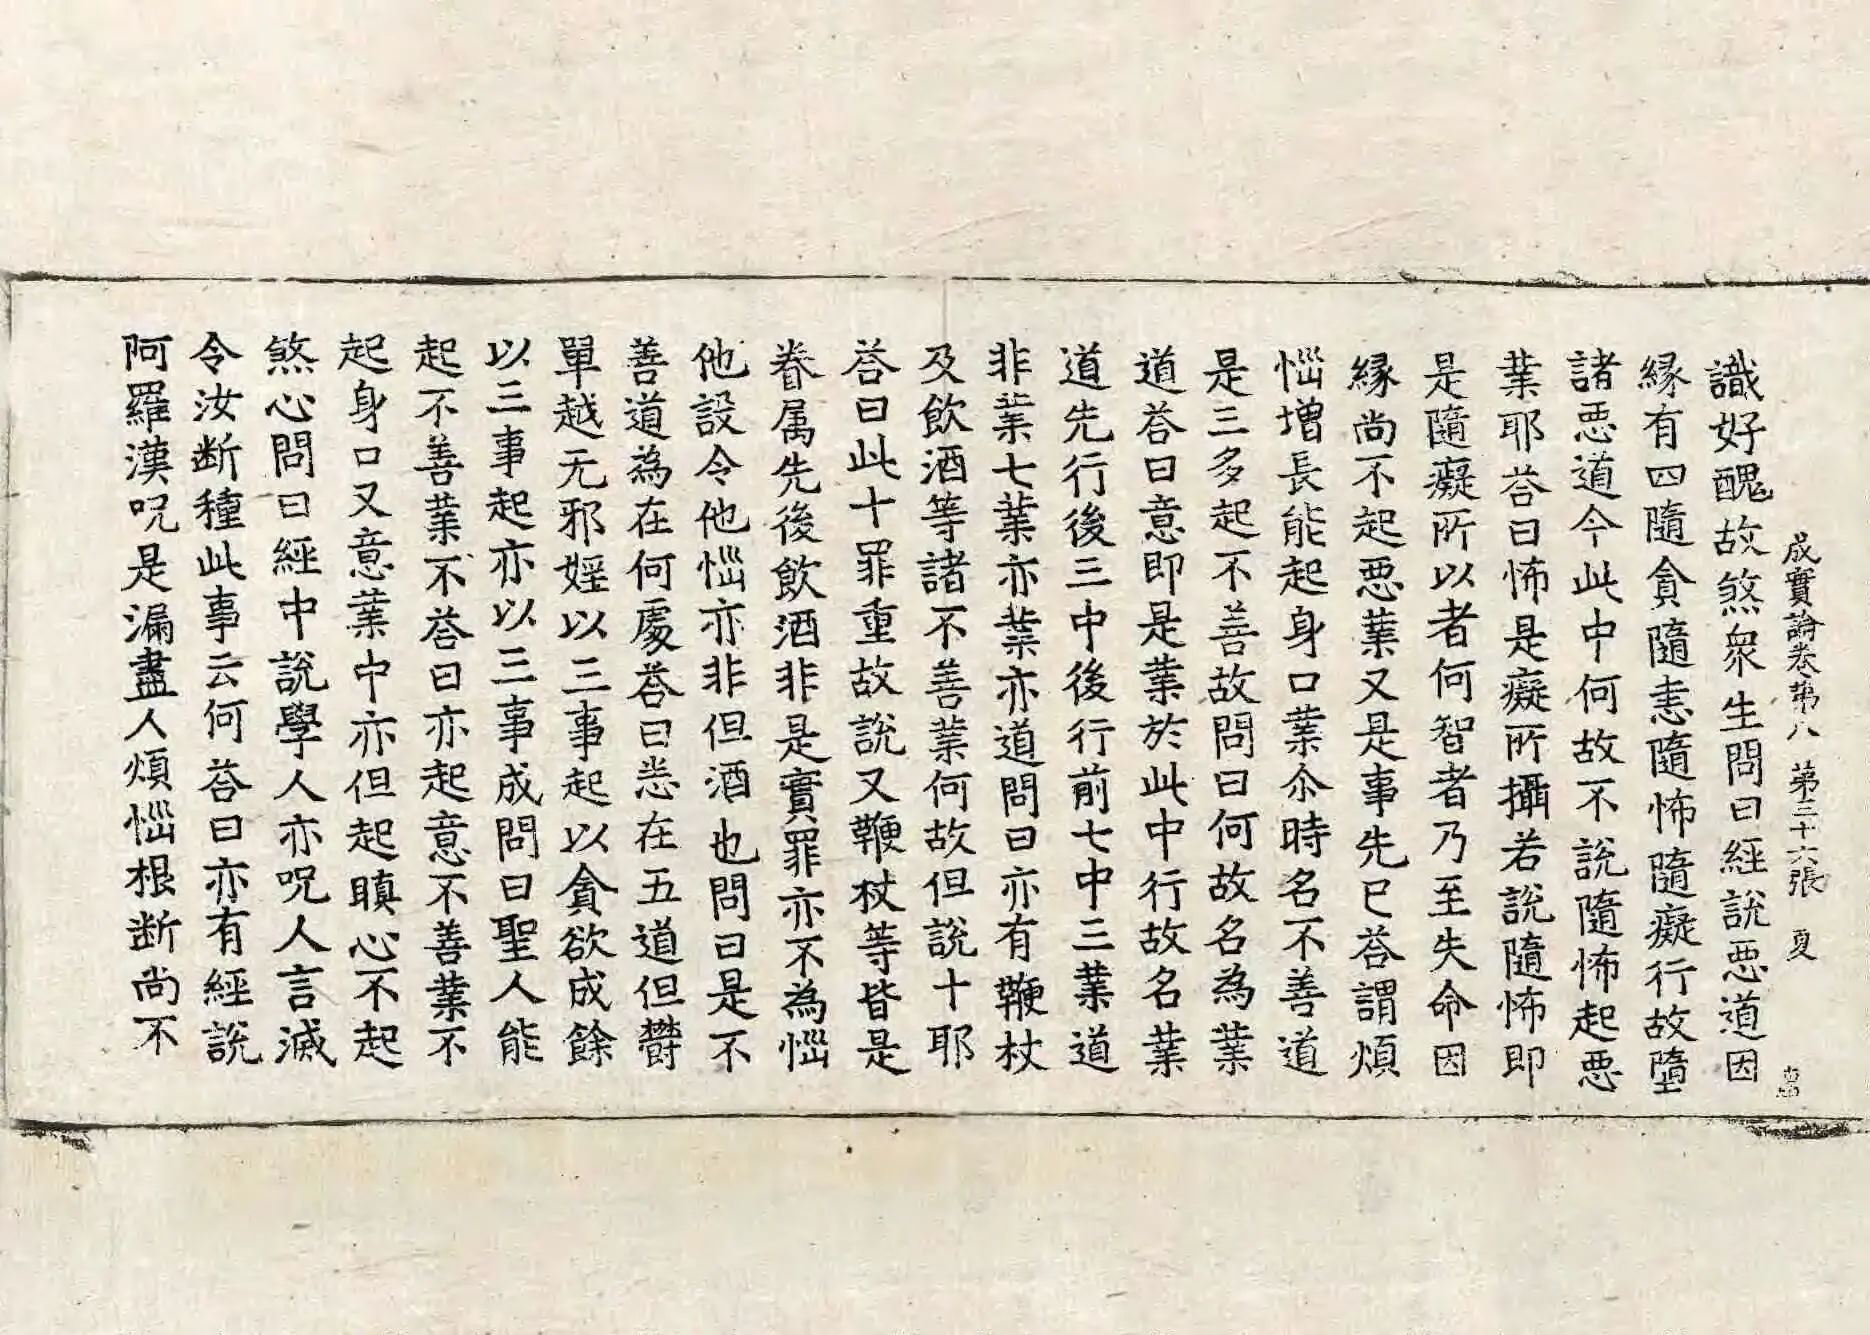 成實論卷第八 第三十六張 夏
識好醜故煞衆生問曰經說悪道因
縁有四隨貪隨恚隨怖隨癡行故墮
諸悪道今此中何故不說隨怖起悪
業耶荅曰怖是癡所攝若說隨怖即
是隨癡所以者何智者乃至失命因
縁尚不起悪業又是事先已荅謂煩
惱增長能起身口業尒時名不善道
是三多起不善故問曰何故名為業
道荅曰意即是業於此中行故名業
道先行後三中後行前七中三業道
非業七業亦業亦道問曰亦有鞭杖
及飲酒等諸不善業何故但說十耶
荅曰此十罪重故說又鞭杖等皆是
眷属先後飲酒非是實罪亦不為惱
他設令他惱亦非但酒也問曰是不
善道為在何處荅曰悉在五道但欝
單越无邪婬以三事起以貪欲成餘
以三事起亦以三事成問曰聖人能
起不善業不荅曰亦起意不善業不
起身口又意業中亦但起瞋心不起
煞心問曰經中說學人亦呪人言滅
令汝断種此事云何荅曰亦有經說
阿羅漢呪是漏盡人煩惱根断尚不